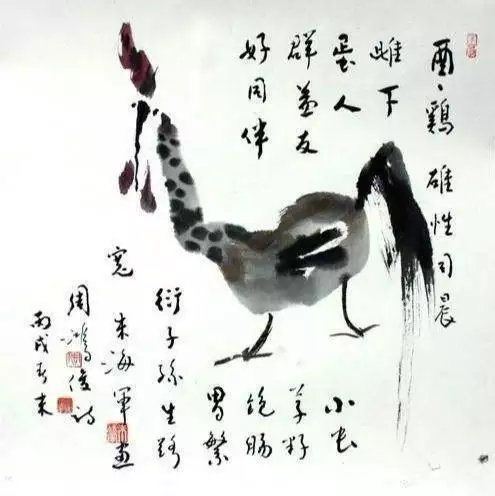 酉、鷄 雄性司晨
雌下
蛋人
群益友
好同伴
小虫
草籽
饱肠
胃繁
衍子孫生路
宽 朱海軍画
周鴻俊诗
丙戌春末